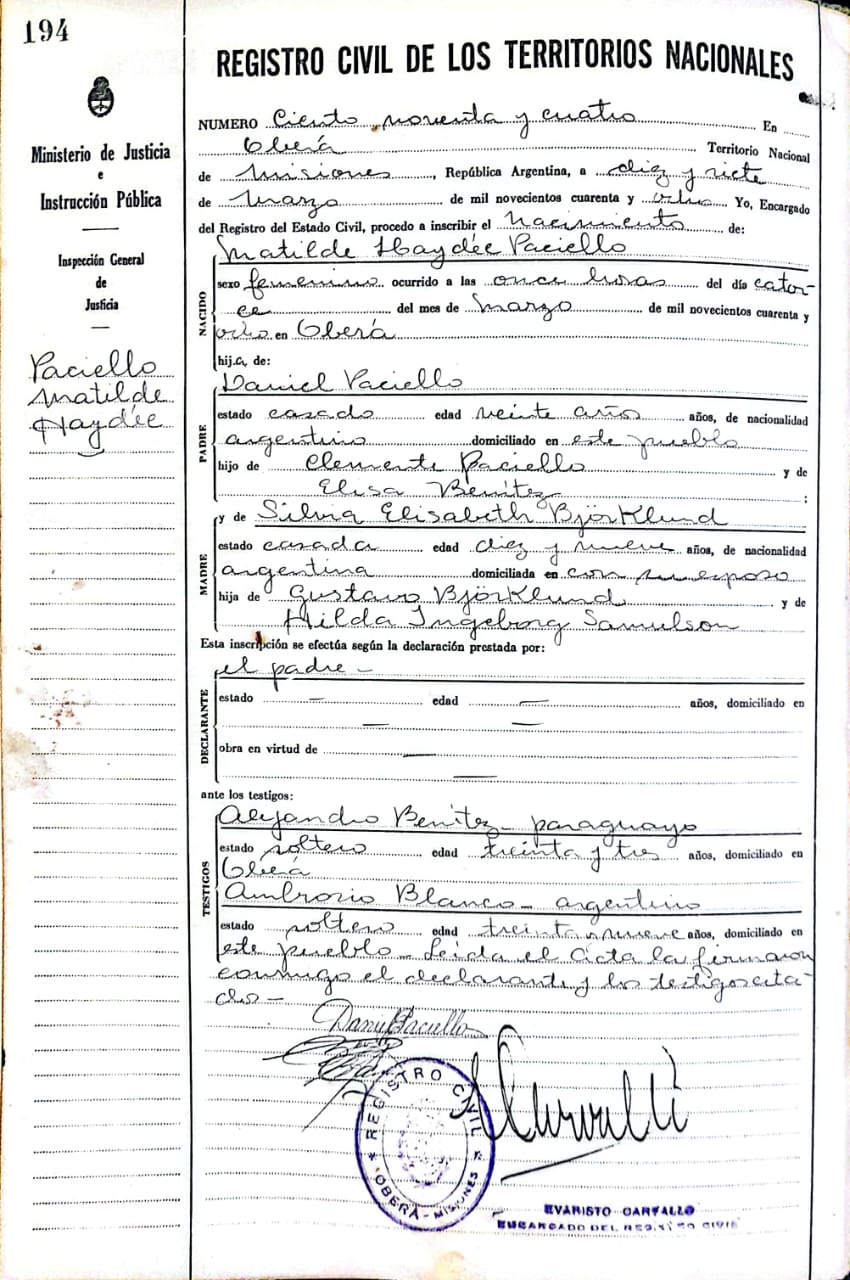 194
REGISTRO CIVIL DE LOS TERRITORIOS NACIONALES
Ministerio de Justicia
e
Instrucción Pública
Inspección General
de
Justicia
Paciello
Matilde
Haydée
NUMERO Ciento noventa y cuatro En
Oberá Territorio Nacional
de Misiones, República Argentina, a diez y siete
de Marzo de mil novecientos cuarenta y ocho Yo, Encargado
del Registro del Estado Civil, procedo a inscribir el nacimiento de:
NACIDO
Matilde Haydée Paciello
sexo femenino ocurrido a las once horas del día cator-
ce del mes de Marzo de mil novecientos cuarenta y
ocho en Oberá
hija de:
PADRE
Daniel Paciello
estado casado edad veinte años años, de nacionalidad
argentino domiciliado en este pueblo
hijo de Clemente Paciello y de
Elisa Benítez ;
MADRE
y de Silvia Elisabeth Björklund
estado casada edad diez y nueve años, de nacionalidad
argentina domiciliada en con su esposo
hija de Gustavo Björklund y de
Hilda Ingeborg Samulson
Esta inscripción se efectúa según la declaración prestada por:
DECLARANTE
el padre —
estado — edad — años, domiciliado en
— —
obra en virtud de —
—
ante los testigos:
TESTIGOS
Alejandro Benítez - paraguayo
estado soltero edad treinta y tres años, domiciliado en
Oberá
Ambrosio Blanco - argentino
estado soltero edad treinta y nueve años, domiciliado en
este pueblo - Leída el Acta la firmaron
conmigo el declarante y los testigos cita-
dos -
Daniel Paciello
REGISTRO CIVIL
* OBERÁ - MISIONES *
EVARISTO CARVALLO
ENCARGADO DEL REGISTRO CIVIL